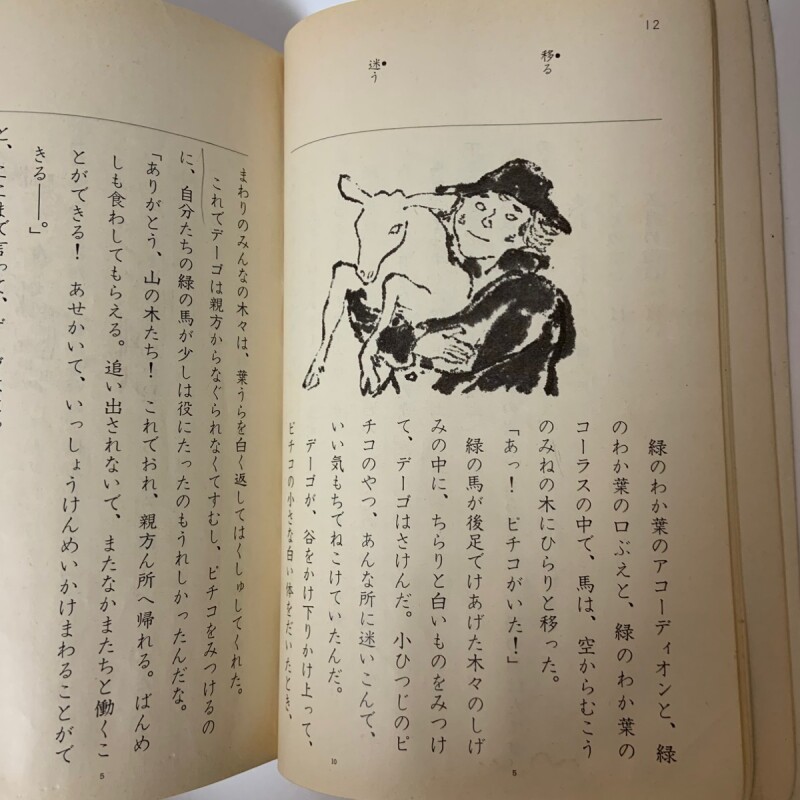 12
移る
迷う
緑のわか葉のアコーディオンと、緑
のわか葉の口ぶえと、緑のわか葉の
コーラスの中で、馬は、空からむこう
のみねの木にひらりと移った。
「あっ！　ピチコがいた！」
緑の馬が後足でけあげた木々のしげ
みの中に、ちらりと白いものをみつけ
て、デーゴはさけんだ。小ひつじのピ
チコのやつ、あんな所に迷いこんで、
いい気もちでねこけていたんだ。
デーゴが、谷をかけ下りかけ上って、
ピチコの小さな白い体をだいたとき、
5
10
まわりのみんなの木々は、葉うらを白く返してはくしゅしてくれた。
これでデーゴは親方からなぐられなくてすむし、ピチコをみつけるの
に、自分たちの緑の馬が少しは役にたったのもうれしかったんだな。
「ありがとう、山の木たち！　これでおれ、親方ん所へ帰れる。ばんめ
しも食わしてもらえる。追い出されないで、またなかまたちと働くこ
とができる！　あせかいて、いっしょうけんめいかけまわることがで
きる――。」
5